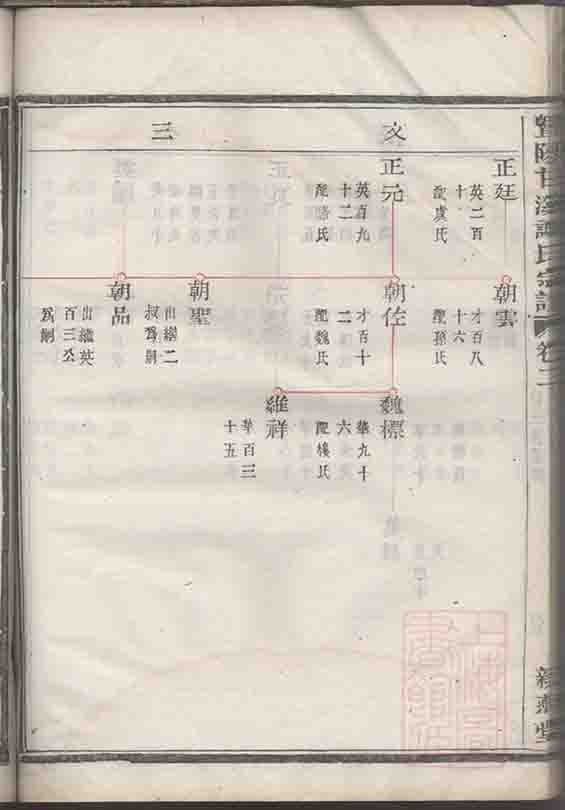 暨陽甘溪譚氏宗譜
卷二
文
三
正廷
英二百
十
配虞氏
正元
英百九
十二
配駱氏
朝雲
才百八
十六
配孫氏
朝佐
才百十
二
配魏氏
朝聖
出繼二
叔爲嗣
朝品
出繼英
百三公
爲嗣
魏標
華九十
六
配樓氏
維祥
華百三
十五
上海圖
書館藏